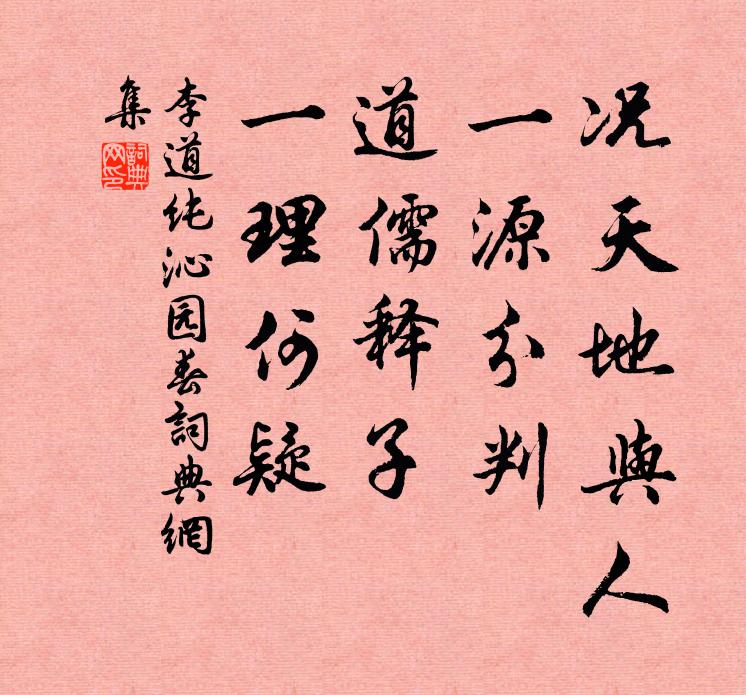 况天地與人
一源分判
道儒释子
一理何疑
李道纯沁园春詞典網
集
詞典
网印